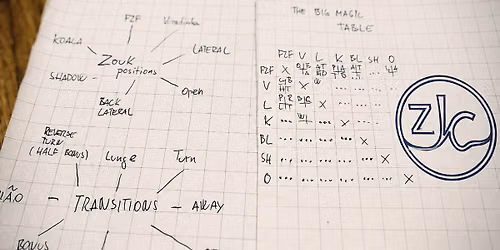 F2F
Viradinha
KOALA
LATERAL
Zouk
positions
SHADOW
Open
BACK
LATERAL
REVERSE
TURN
(HALF BONUS)
Lunge
Turn
ÃO
TRANSITIONS
AWAY
BONUS
THE BIG MAGIC
TABLE
F2F V L K BL SH O
F2F X
V X
L X
K X
BL X
SH X
O X
zlc